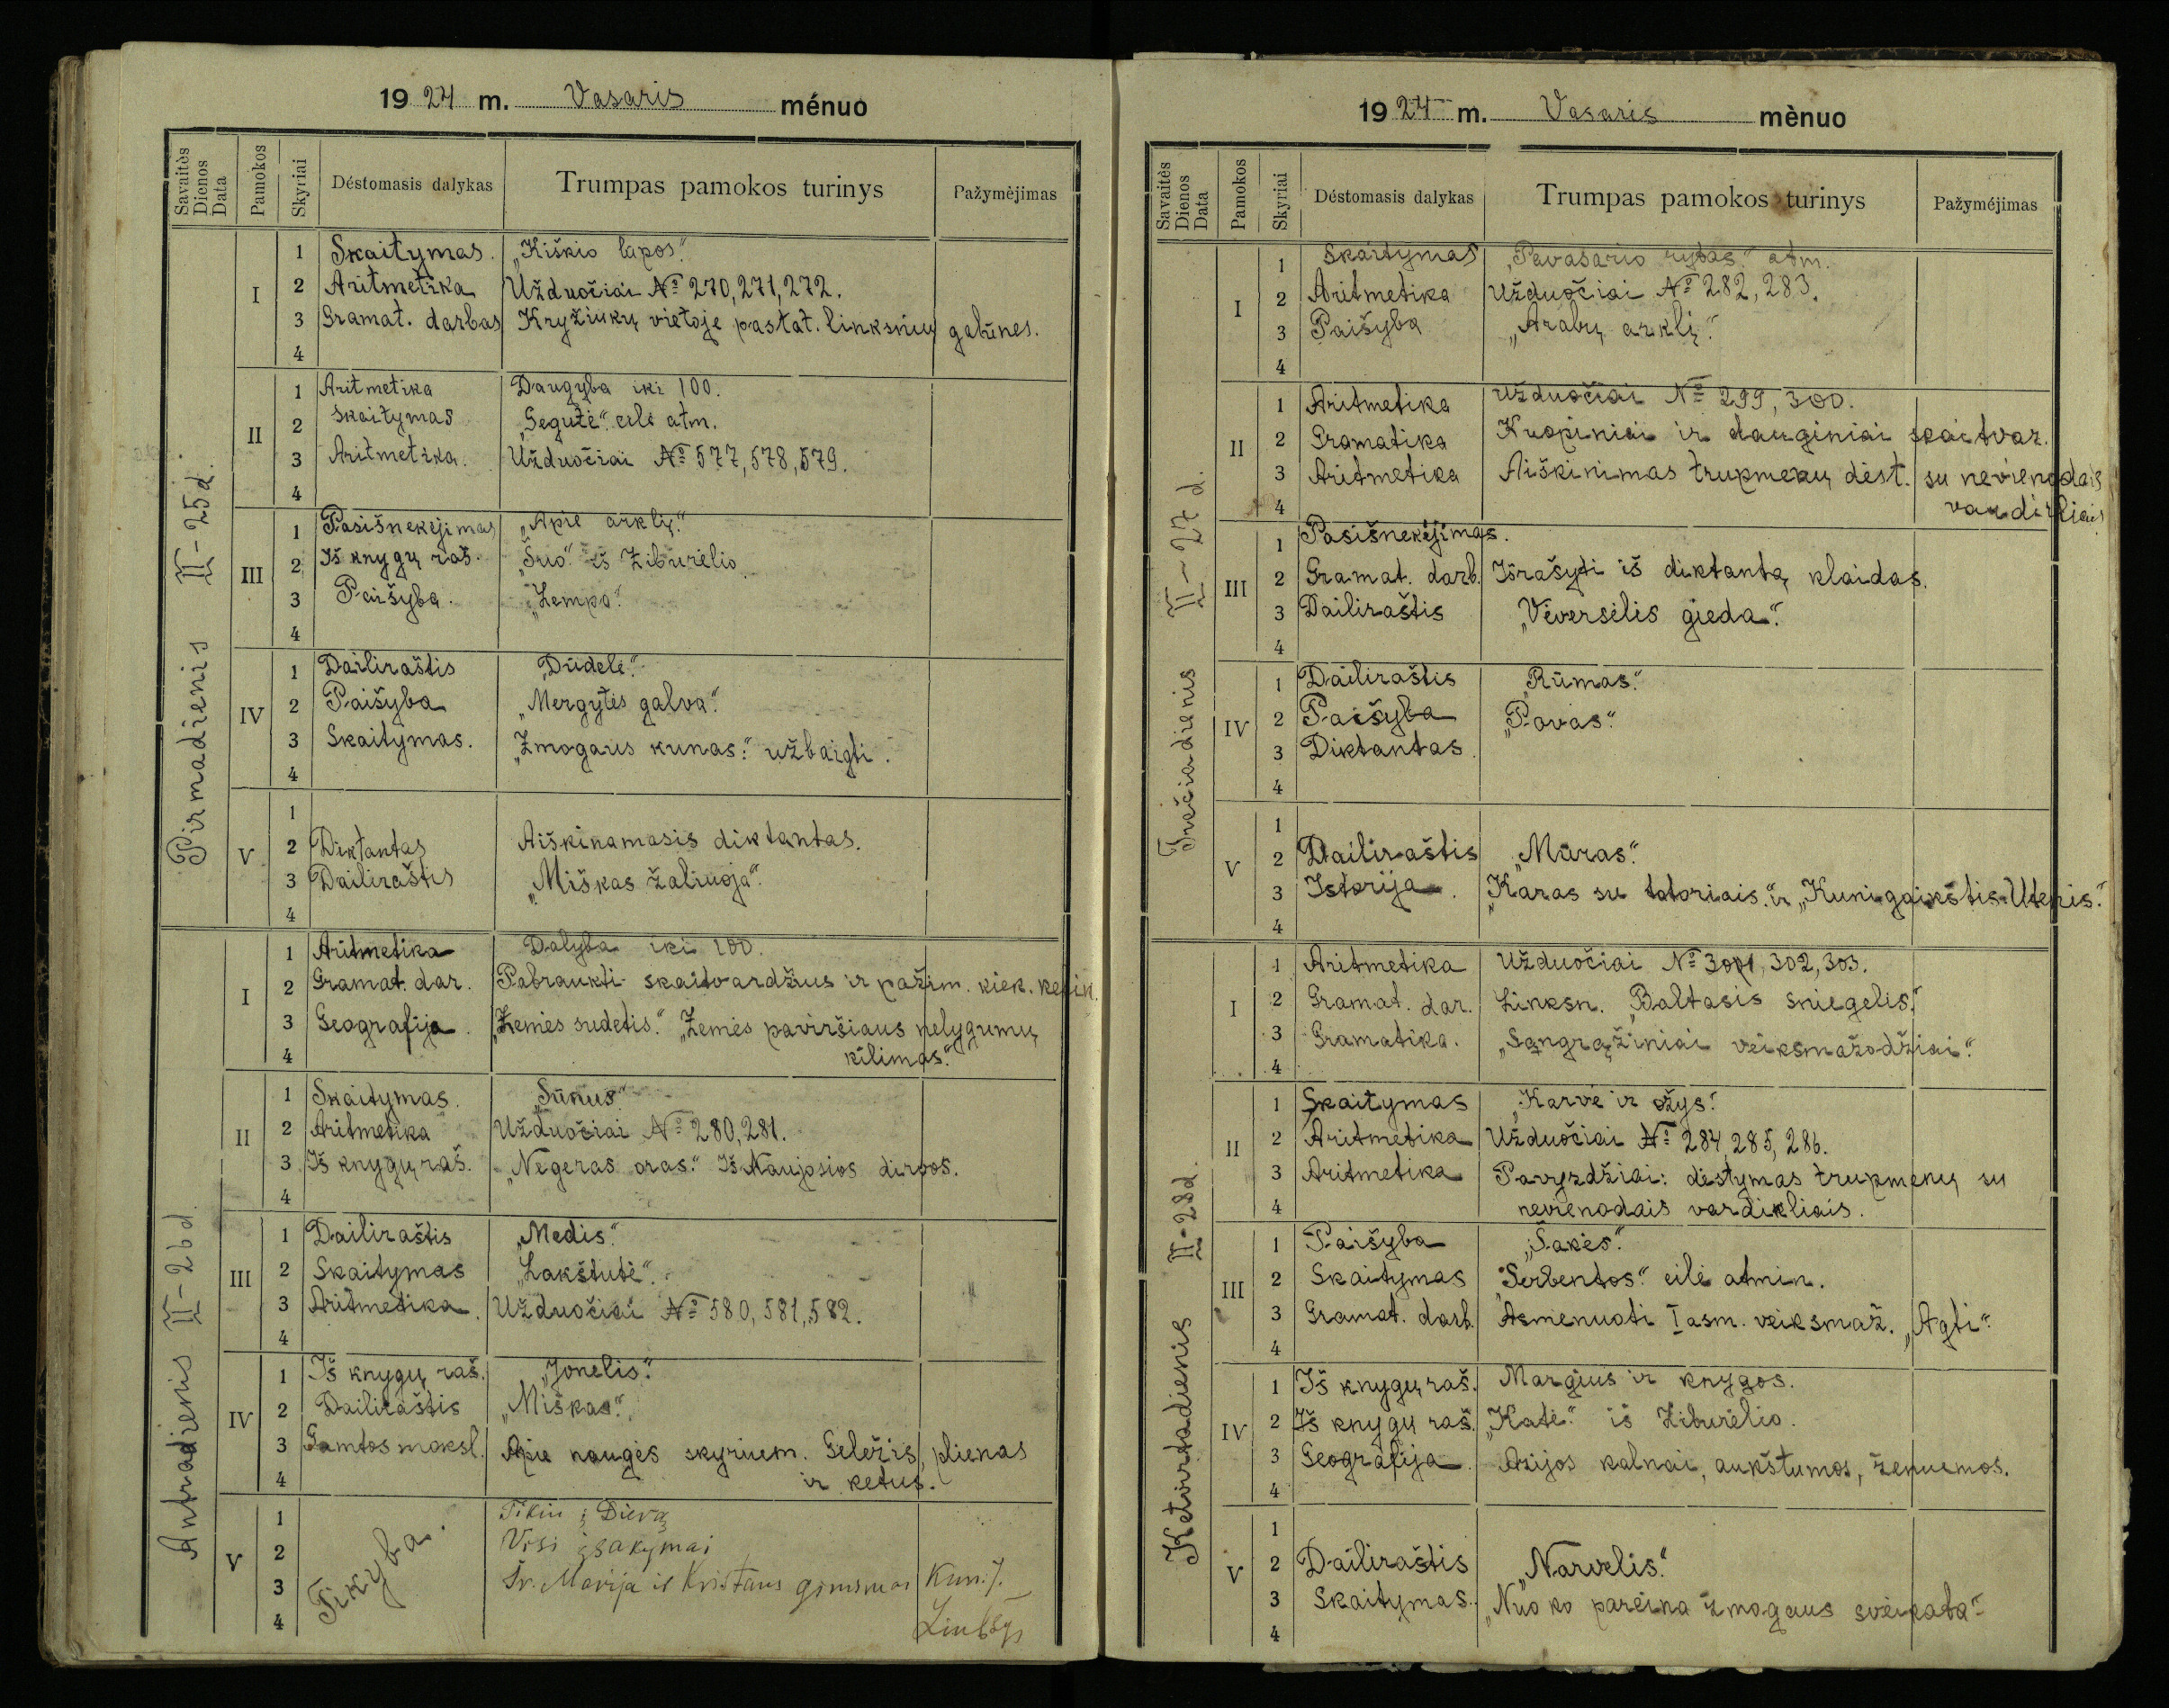 1924 m. Vasaris ménuo
Savaitės Dienos Data
Pamokos
Skyriai
Déstomasis dalykas
Trumpas pamokos turinys
Pažymėjimas
Pirmadienis II-25 d.
I
1 Skaitymas. „Kiškio lapos."
2 Aritmetika Užduočiai № 270, 271, 272.
3 Gramat. darbas Kryžiukų vietoje pastat. linksnių galūnes.
4
II
1 Aritmetika Daugyba iki 100.
2 Skaitymas „Gegutė." eilė atm.
3 Aritmetika. Užduočiai № 577, 578, 579.
4
III
1 Pasišnekėjimas „Apie arklį."
2 Iš knygų raš. „Šuo." iš Žiburėlio.
3 Paišyba. „Lempa".
4
IV
1 Dailiraštis „Dūdelė".
2 Paišyba „Mergytės galva".
3 Skaitymas. „Žmogaus kunas." užbaigti.
4
V
1
2 Diktantas Aiškinamasis diktantas.
3 Dailiraštis „Miškas žaliuoja".
4
Antradienis II-26 d.
I
1 Aritmetika Dalyba iki 100.
2 Gramat. dar. Pabraukti skaitvardžius ir pažim. kiek. kelin.
3 Geografija. „Žemės sudetis." „Žemės paviršiaus nelygumų
4 kilimas."
II
1 Skaitymas. „Sūnus"
2 Aritmetika Užduočiai № 280, 281.
3 Iš knygų raš. „Negeras oras." Iš Naujosios dirvos.
4
III
1 Dailiraštis „Medis."
2 Skaitymas „Lakštutė".
3 Aritmetika. Užduočiai № 580, 581, 582.
4
IV
1 Iš knygų raš. „Jonelis."
2 Dailiraštis „Miškas".
3 Gamtos moksl. Apie naugės skyrium. Geležis, plienas
4 ir ketus.
V
1 Tikiu į Dievą
2 Visi įsakymai
3 Tikyba. Šv. Marija ir Kristaus gimimas Kun. J.
4
1924 m. Vasaris mènuo
Savaitės Dienos Data
Pamokos
Skyriai
Déstomasis dalykas
Trumpas pamokos turinys
Pažyméjimas
Trečiadienis II-27 d.
I
1 Skaitymas „Pavasario rytas." atm.
2 Aritmetika Užduočiai № 282, 283.
3 Paišyba „Arabų arklį."
4
II
1 Aritmetika Užduočiai № 299, 300.
2 Gramatika Kuopiniai ir dauginiai skaitvar.
3 Aritmetika Aiškinimas trupmenų dėst. su nevienodais
4 vardikliais
III
1 Pasišnekėjimas.
2 Gramat. darb. Išrašyti iš diktantą klaidas.
3 Dailiraštis „Vėversėlis gieda".
4
IV
1 Dailiraštis „Rūmas."
2 Paišyba „Povas."
3 Diktantas.
4
V
1
2 Dailiraštis „Mūras".
3 Istorija. „Karas su totoriais." ir „Kunigaikštis Utenis."
4
Ketvirtadienis II-28 d.
I
1 Aritmetika Užduočiai № 301, 302, 303.
2 Gramat. dar. Linksn. „Baltasis sniegelis."
3 Gramatika. „Sangrąžiniai veiksmažodžiai".
4
II
1 Skaitymas „Karvė ir ožys."
2 Aritmetika Užduočiai № 284, 285, 286.
3 Aritmetika Pavyzdžiai: dėstymas trupmenų su
4 nevienodais vardikliais.
III
1 Paišyba „Šakės."
2 Skaitymas „Serbentos." eilė atmin.
3 Gramat. darb. Asmenuoti I asm. veiksmaž. „Agti".
4
IV
1 Iš knygų raš. Margius ir knygos.
2 Iš knygų raš. „Katė." iš Žiburėlio.
3 Geografija Azijos kalnai, aukštumos, žemumos.
4
V
1
2 Dailiraštis „Narvelis."
3 Skaitymas. „Nuo ko pareina žmogaus sveikata"
4